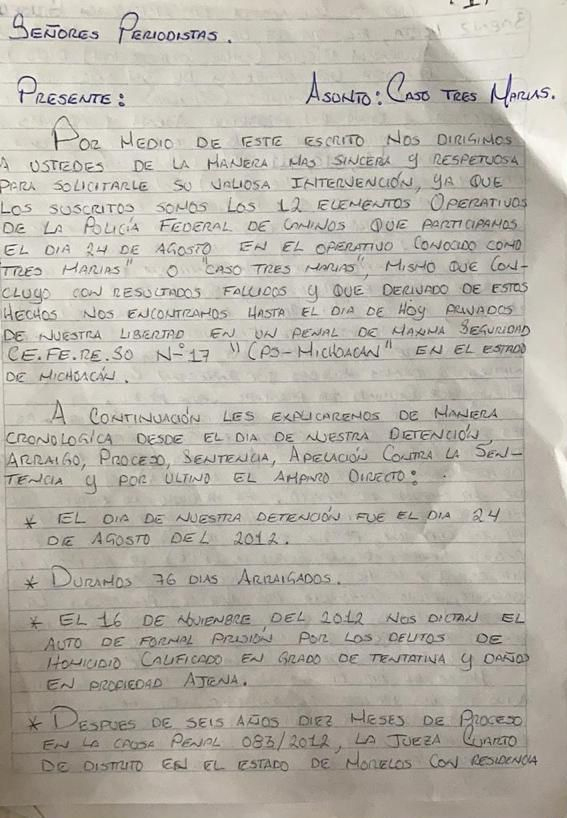 SEÑORES PERIODISTAS.
PRESENTE: ASUNTO: CASO TRES MARIAS.
POR MEDIO DE ESTE ESCRITO NOS DIRIGIMOS
A USTEDES DE LA MANERA MAS SINCERA Y RESPETUOSA
PARA SOLICITARLE SU VALIOSA INTERVENCIÓN, YA QUE
LOS SUSCRITOS SOMOS LOS 12 ELEMENTOS OPERATIVOS
DE LA POLICÍA FEDERAL DE CAMINOS QUE PARTICIPAMOS
EL DIA 24 DE AGOSTO EN EL OPERATIVO CONOCIDO COMO
"TRES MARIAS" O "CASO TRES MARIAS", MISMO QUE CON-
CLUYO CON RESULTADOS FALLIDOS Y QUE DERIVADO DE ESTOS
HECHOS NOS ENCONTRAMOS HASTA EL DIA DE HOY PRIVADOS
DE NUESTRA LIBERTAD EN UN PENAL DE MAXIMA SEGURIDAD
CE.FE.RE.SO Nº 17 "CPS-MICHOACAN" EN EL ESTADO
DE MICHOACÁN.
A CONTINUACIÓN LES EXPLICAREMOS DE MANERA
CRONOLOGICA DESDE EL DIA DE NUESTRA DETENCIÓN,
ARRAIGO, PROCESO, SENTENCIA, APELACIÓN CONTRA LA SEN-
TENCIA Y POR ULTIMO EL AMPARO DIRECTO:
* EL DIA DE NUESTRA DETENCIÓN FUE EL DIA 24
DE AGOSTO DEL 2012.
* DURAMOS 76 DIAS ARRAIGADOS.
* EL 16 DE NOVIENBRE DEL 2012 NOS DICTAN EL
AUTO DE FORMAL PRISIÓN POR LOS DELITOS DE
HOMICIDIO CALIFICADO EN GRADO DE TENTATIVA Y DAÑOS
EN PROPIEDAD AJENA.
* DESPUES DE SEIS AÑOS DIEZ MESES DE PROCESO
EN LA CAUSA PENAL 083/2012, LA JUEZA CUARTO
DE DISTRITO EN EL ESTADO DE MORELOS CON RESIDENCIA